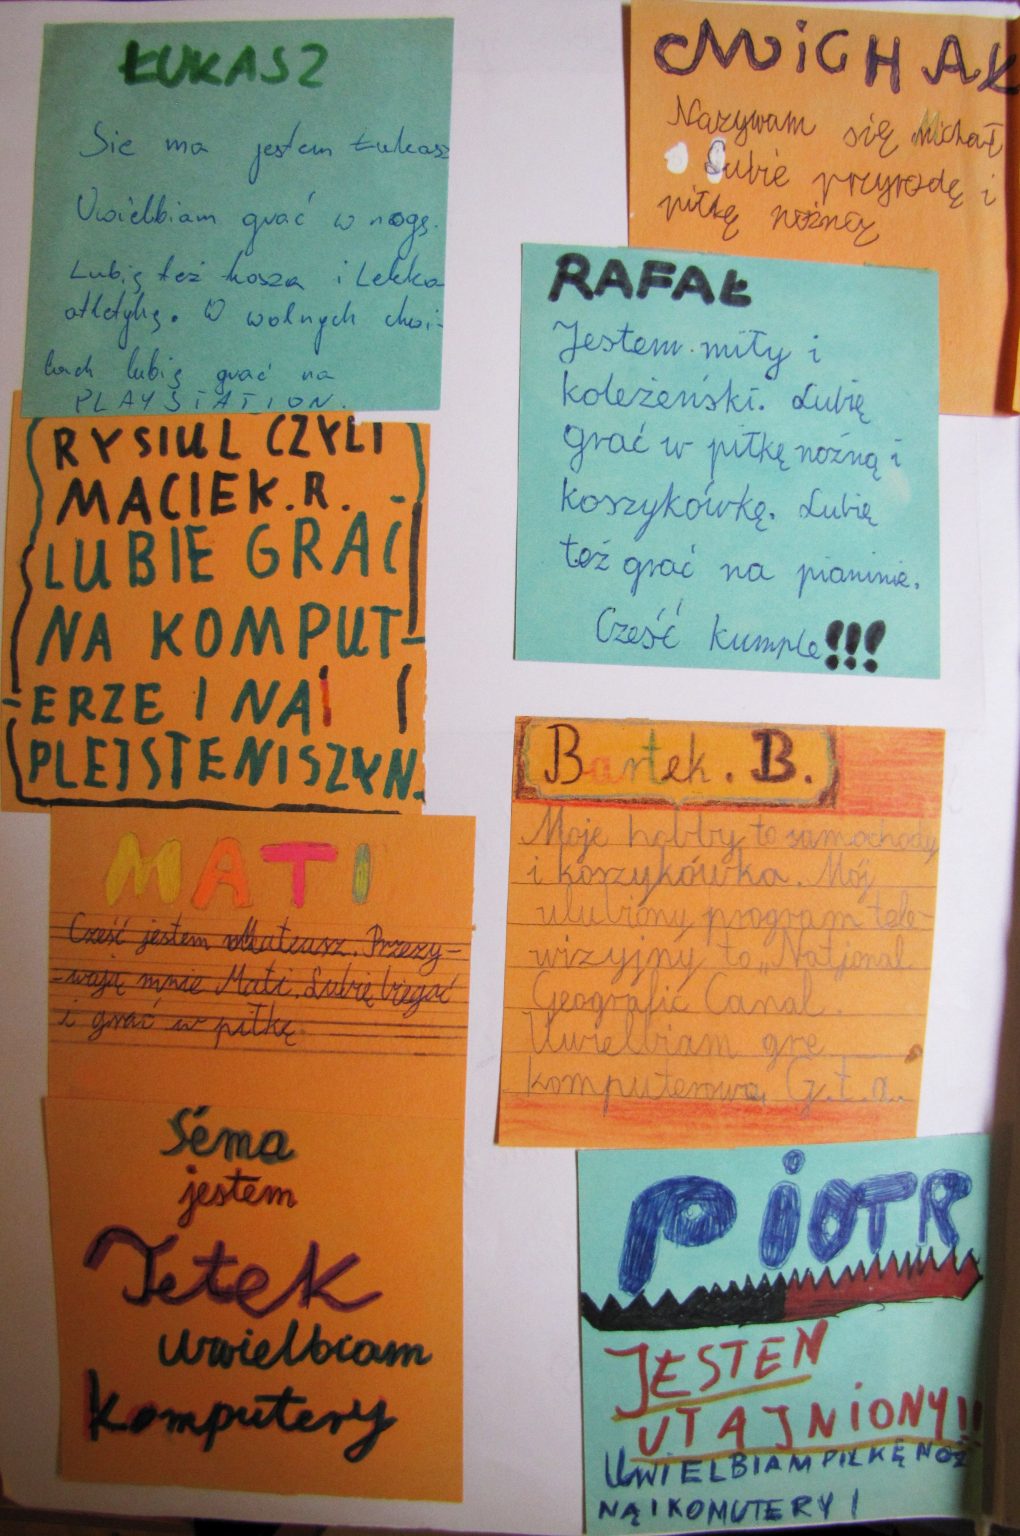 ŁUKASZ
Sie ma jestem Łukasz
Uwielbiam grać w nogę.
Lubię też kosza i Lekko
atletykę. W wolnych chwi-
lach lubię grać na
PLAYSTATION.
RYSIUL CZYLI
MACIEK.R.
LUBIE GRAĆ
NA KOMPUT-
ERZE I NA
PLEJSTENISZYN.
MATI
Cześć jestem Mateusz. Przezy-
-wają mnie Mati. Lubię biegać
i grać w piłkę.
Séma
jestem
Jetek
uwielbiam
komputery
MICHAŁ
Nazywam się Michał
Lubie przyrodę i
piłkę nożną
RAFAŁ
Jestem miły i
koleżeński. Lubię
grać w piłkę nożną i
koszykówkę. Lubię
też grać na pianinie.
Cześć kumple!!!
Bartek. B.
Moje hobby to samochody
i koszykówka. Mój
ulubiony program tele-
wizyjny to „Natjonal
Geografic Canal.
Uwielbiam grę
komputerową G.t.a.
PiOTR
JESTEN
UTAJNIONY!!
UWIELBIAM PIŁKĘ NOŻ
NĄ I KOMUTERY!